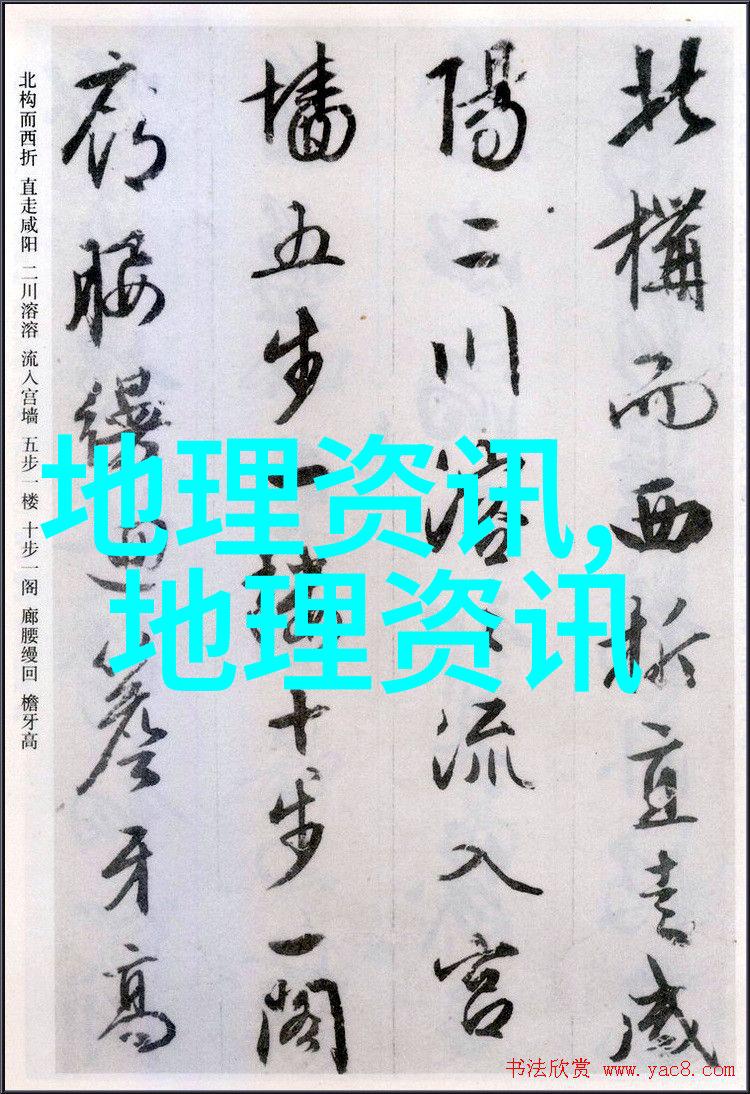 北構而西折直走咸
陽二川溶々流入宮
墻五步一樓十步一閣
廊腰縵迴簷牙高
北构而西折 直走咸阳 二川溶溶 流入宫墙 五步一楼 十步一阁 廊腰缦回 檐牙高
地理资讯,
地理资讯
书法欣赏 www.yac8.com